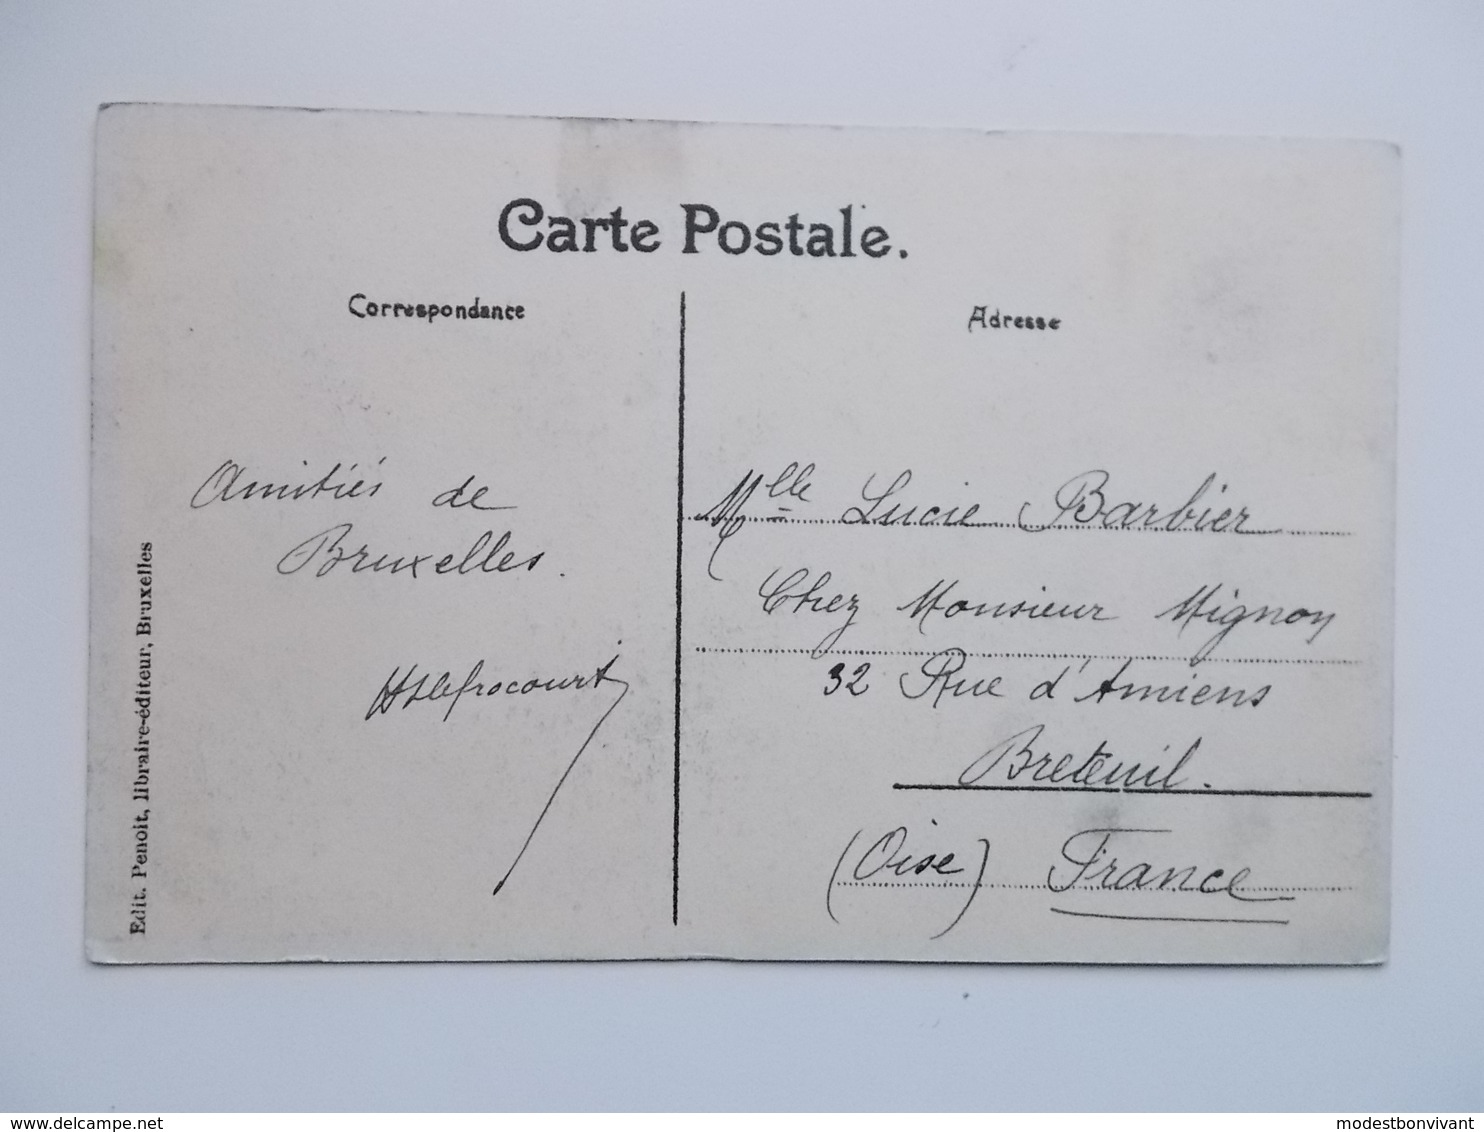 Carte Postale.
Correspondance
Adresse
Amitiés de
Bruxelles.
Mlle Lucie Barbier
Chez Monsieur Mignon
32 Rue d'Amiens
Breteuil.
(Oise) France
Edit. Penoit, libraire-éditeur, Bruxelles
delcampe.net
modestbonvivant